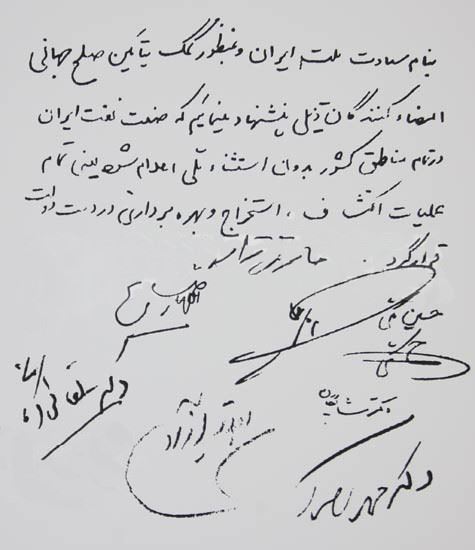 بنام سعادت ملت ایران و بمنظور کمک بتأمین صلح جهانی
امضاء کنندگان ذیل پیشنهاد مینمائیم که صنعت نفت ایران
در تمام مناطق کشور بدون استثناء ملی اعلام شود یعنی تمام
عملیات اکتشاف، استخراج و بهره برداری در دست دولت
قرار گیرد. حائری زاده
اللهیار صالح
حسین مکی
دکتر شایگان
دکتر بقائی
آزاد
دکتر محمد مصدق